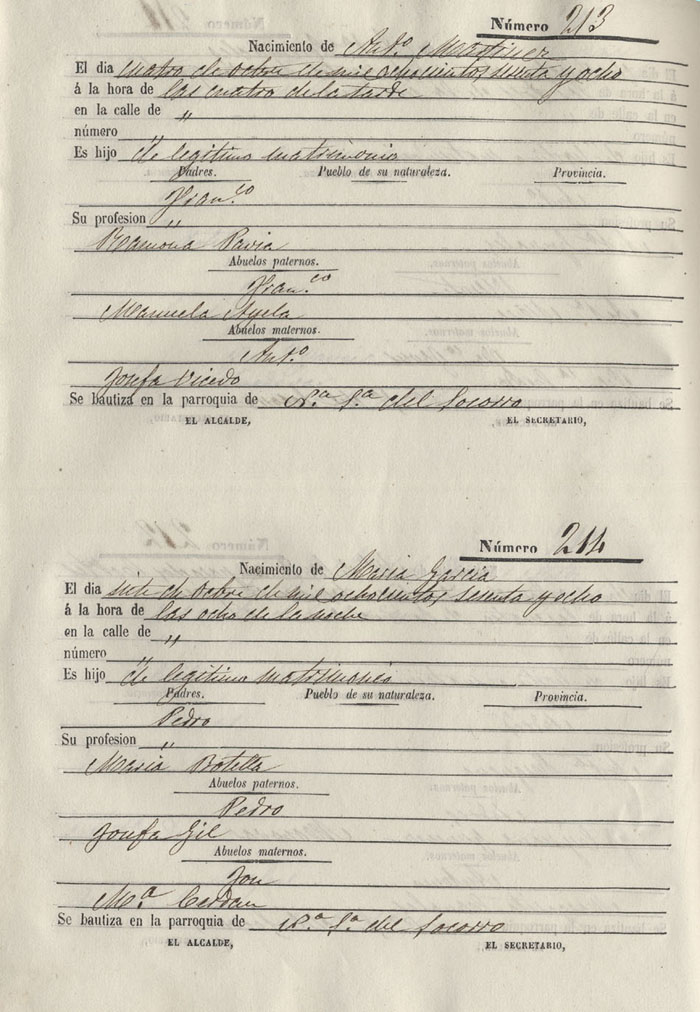 Número 213
Nacimiento de Ant.º Martinez
El dia cuatro de octbre de mil ochocientos sesenta y ocho
á la hora de las cuatro de la tarde
en la calle de "
número "
Es hijo de legitimo matrimonio
Padres. Pueblo de su naturaleza. Provincia.
Fran.co
Su profesion "
Ramona Pavia
Abuelos paternos.
Fran.co
Manuela Ayela
Abuelos maternos.
Ant.º
Josefa Vicedo
Se bautiza en la parroquia de N.a S.a del Socorro
EL ALCALDE, EL SECRETARIO,
Número 214
Nacimiento de Maria Garcia
El dia siete de octbre de mil ochocientos sesenta y ocho
á la hora de las ocho de la noche
en la calle de "
número "
Es hijo de legitimo matrimonio
Padres. Pueblo de su naturaleza. Provincia.
Pedro
Su profesion "
Maria Botella
Abuelos paternos.
Pedro
Josefa Gil
Abuelos maternos.
José
M.a Cerdan
Se bautiza en la parroquia de N.a S.a del Socorro
EL ALCALDE, EL SECRETARIO,